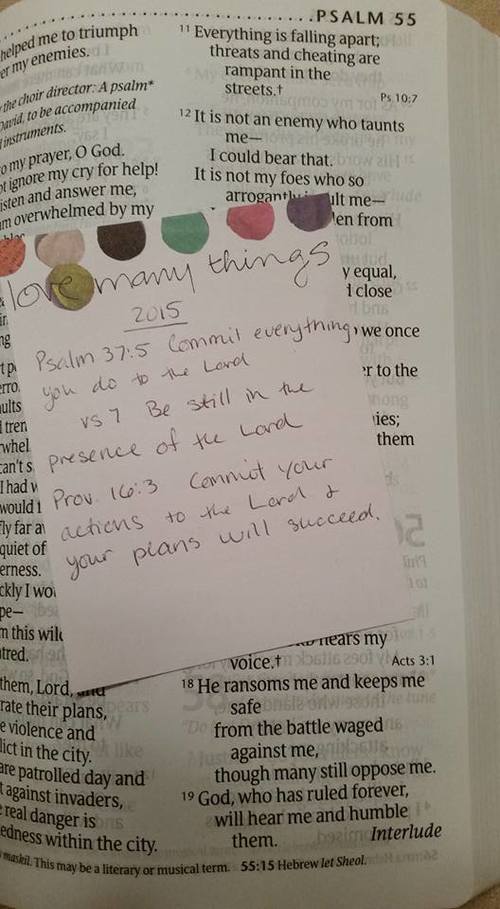 PSALM 55
helped me to triumph
my enemies.
the choir director: A psalm*
David, to be accompanied
instruments.
my prayer, O God.
ignore my cry for help!
Listen and answer me,
overwhelmed by my
11 Everything is falling apart;
threats and cheating are
rampant in the
streets.†
Ps 10:7
12 It is not an enemy who taunts
me—
I could bear that.
It is not my foes who so
arrogantly
me—
from
love many things
2015
Psalm 37:5 Commit everything
you do to the Lord
vs 7 Be still in the
presence of the Lord
Prov. 16:3 Commit your
actions to the Lord &
your plans will succeed.
y equal,
close
we once
to the
them
can't s
I had
would
fly far a
quiet of
I wo
this
them, Lord, and
their plans,
violence and
in the city.
are patrolled day and
against invaders,
real danger is
within the city.
hears my
voice.†
Acts 3:1
18 He ransoms me and keeps me
safe
from the battle waged
against me,
though many still oppose me.
19 God, who has ruled forever,
will hear me and humble
them.
Interlude
maskil. This may be a literary or musical term. 55:15 Hebrew let Sheol.